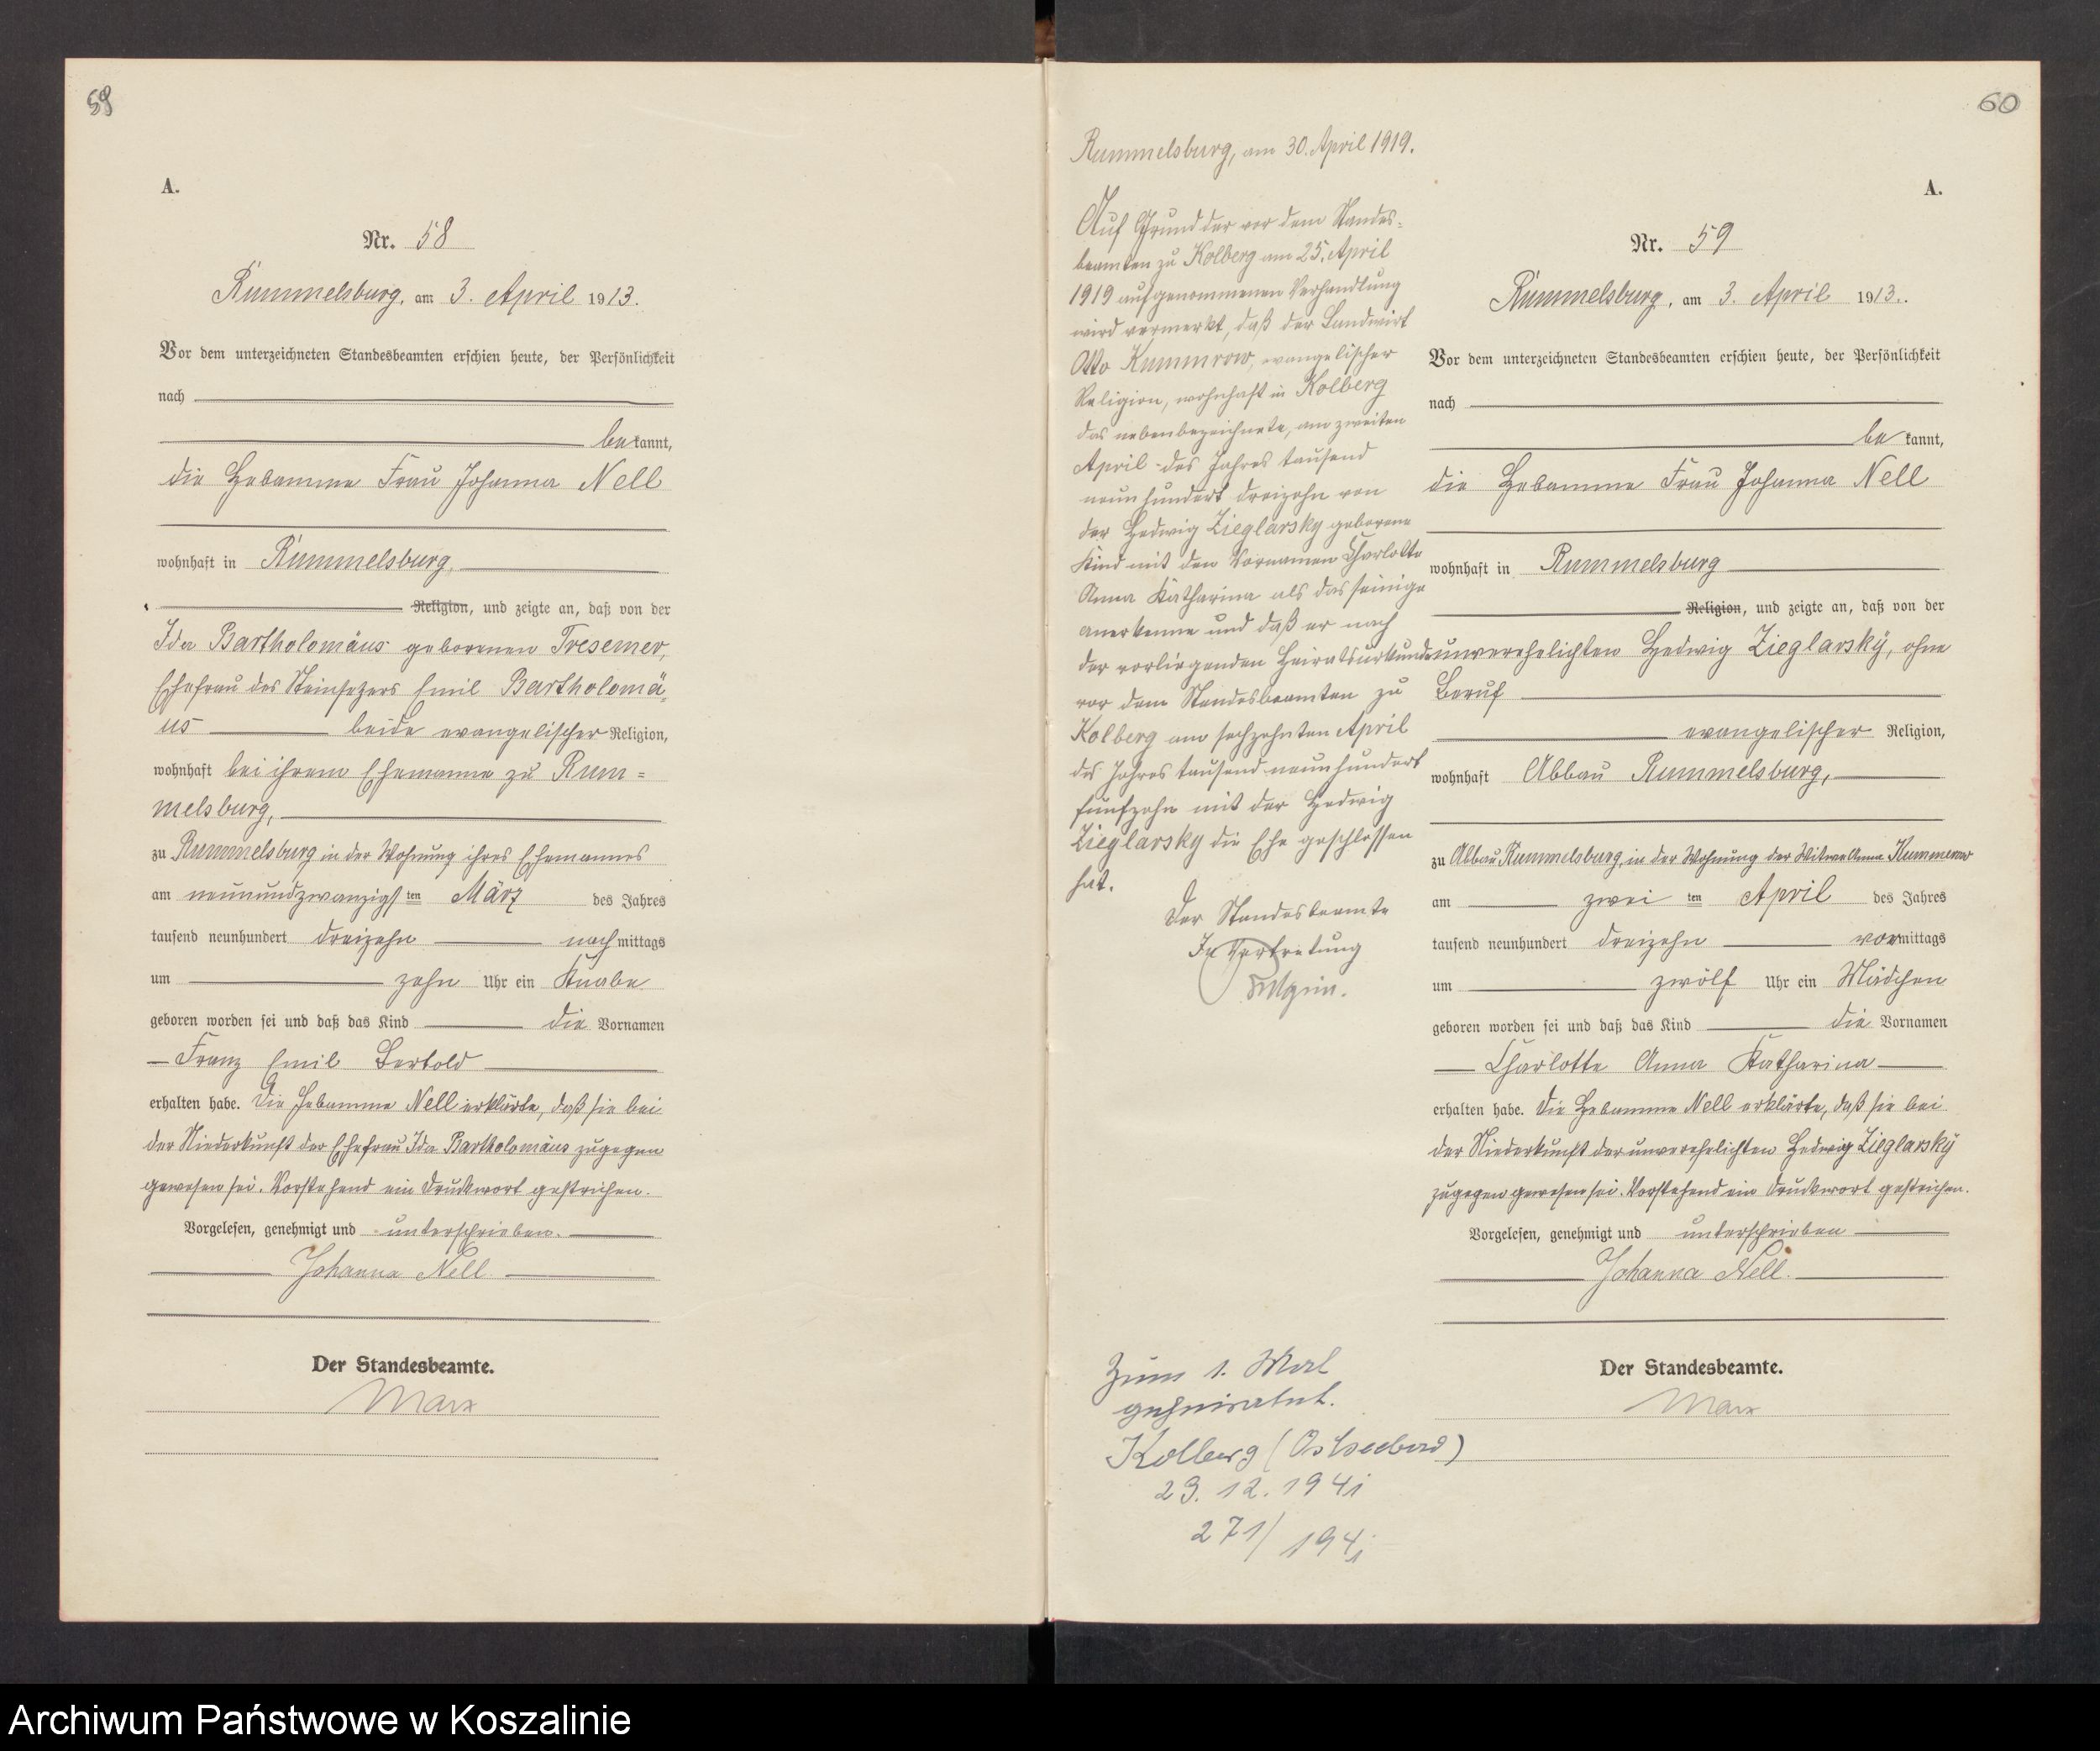 59
A.
Nr. 58
Rummelsburg, am 3. April 1913.
Vor dem unterzeichneten Standesbeamten erschien heute, der Persönlichkeit
nach
bekannt,
die Hebamme Frau Johanna Nell
wohnhaft in Rummelsburg,
Religion, und zeigte an, daß von der
Ida Bartholomäus geborenen Tresemer,
Ehefrau des Steinsetzers Emil Bartholomä-
us beide evangelischer Religion,
wohnhaft bei ihrem Ehemanne zu Rum=
melsburg,
zu Rummelsburg in der Wohnung ihres Ehemannes
am neunundzwanzigsten März des Jahres
tausend neunhundert dreizehn nachmittags
um zehn Uhr ein Knabe
geboren worden sei und daß das Kind die Vornamen
Franz Emil Bertold
erhalten habe. Die Hebamme Nell erklärte, daß sie bei
der Niederkunft der Ehefrau Ida Bartholomäus zugegen
gewesen sei. Vorstehend ein Druckwort gestrichen.
Vorgelesen, genehmigt und unterschrieben.
Johanna Nell
Der Standesbeamte.
Marx
60
Rummelsburg, am 30. April 1919.
Auf Grund der vor dem Standes-
beamten zu Kolberg am 25. April
1919 aufgenommenen Verhandlung
wird vermerkt, daß der Landwirt
Otto Kummrow, evangelischer
Religion, wohnhaft in Kolberg
das nebenbezeichnete, am zweiten
April des Jahres tausend
neunhundert dreizehn von
der Hedwig Zieglarsky geborene
Kind mit den Vornamen Charlotte
Anna Katharina als das seinige
anerkenne und daß er nach
der vorliegenden Heiratsurkunde
vor dem Standesbeamten zu
Kolberg am sechzehnten April
des Jahres tausend neunhundert
fünfzehn mit der Hedwig
Zieglarsky die Ehe geschlossen
hat.
Der Standesbeamte
In Vertretung
Zum 1. Mal
geheiratet.
Kolberg (Ostseebad)
29. 12. 1941
271/1941
A.
Nr. 59
Rummelsburg, am 3. April 1913.
Vor dem unterzeichneten Standesbeamten erschien heute, der Persönlichkeit
nach
bekannt,
die Hebamme Frau Johanna Nell
wohnhaft in Rummelsburg
Religion, und zeigte an, daß von der
unverehelichten Hedwig Zieglarsky, ohne
Beruf
evangelischer Religion,
wohnhaft Abbau Rummelsburg,
zu Abbau Rummelsburg, in der Wohnung der Witwe Anna Kummerow
am zweiten April des Jahres
tausend neunhundert dreizehn vormittags
um zwölf Uhr ein Mädchen
geboren worden sei und daß das Kind die Vornamen
Charlotte Anna Katharina
erhalten habe. Die Hebamme Nell erklärte, daß sie bei
der Niederkunft der unverehelichten Hedwig Zieglarsky
zugegen gewesen sei. Vorstehend ein Druckwort gestrichen.
Vorgelesen, genehmigt und unterschrieben
Johanna Nell.
Der Standesbeamte.
Marx
Archiwum Państwowe w Koszalinie